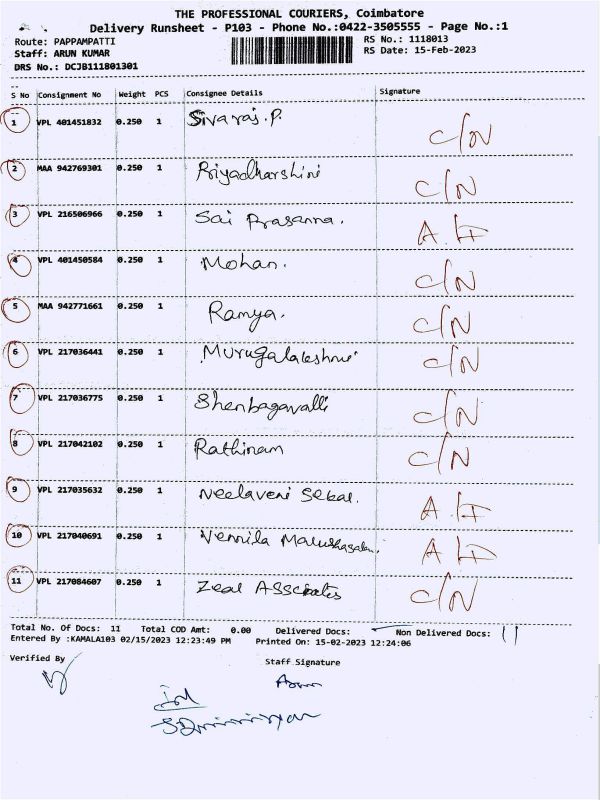 THE PROFESSIONAL COURIERS, Coimbatore
Delivery Runsheet - P103 - Phone No.:0422-3505555 - Page No.:1
Route: PAPPAMPATTI RS No.: 1118013
Staff: ARUN KUMAR RS Date: 15-Feb-2023
DRS No.: DCJB111801301
S No Consignment No Weight PCS Consignee Details Signature
1 VPL 401451832 0.250 1 Sivaraj.P. C/N
2 MAA 942769301 0.250 1 Priyadharshini C/N
3 VPL 216506966 0.250 1 Sai Prasanna. A.I
4 VPL 401450584 0.250 1 Mohan. C/N
5 MAA 942771661 0.250 1 Ramya. C/N
6 VPL 217036441 0.250 1 Murugalakshmi C/N
7 VPL 217036775 0.250 1 Shenbagavalli C/N
8 VPL 217042102 0.250 1 Rathinam C/N
9 VPL 217035632 0.250 1 Neelaveni Sekar. A.I
10 VPL 217040691 0.250 1 Vennila A.I
11 VPL 217084607 0.250 1 Zeal Associates C/N
Total No. Of Docs: 11 Total COD Amt: 0.00 Delivered Docs: — Non Delivered Docs: 11
Entered By :KAMALA103 02/15/2023 12:23:49 PM Printed On: 15-02-2023 12:24:06
Verified By Staff Signature
Arun